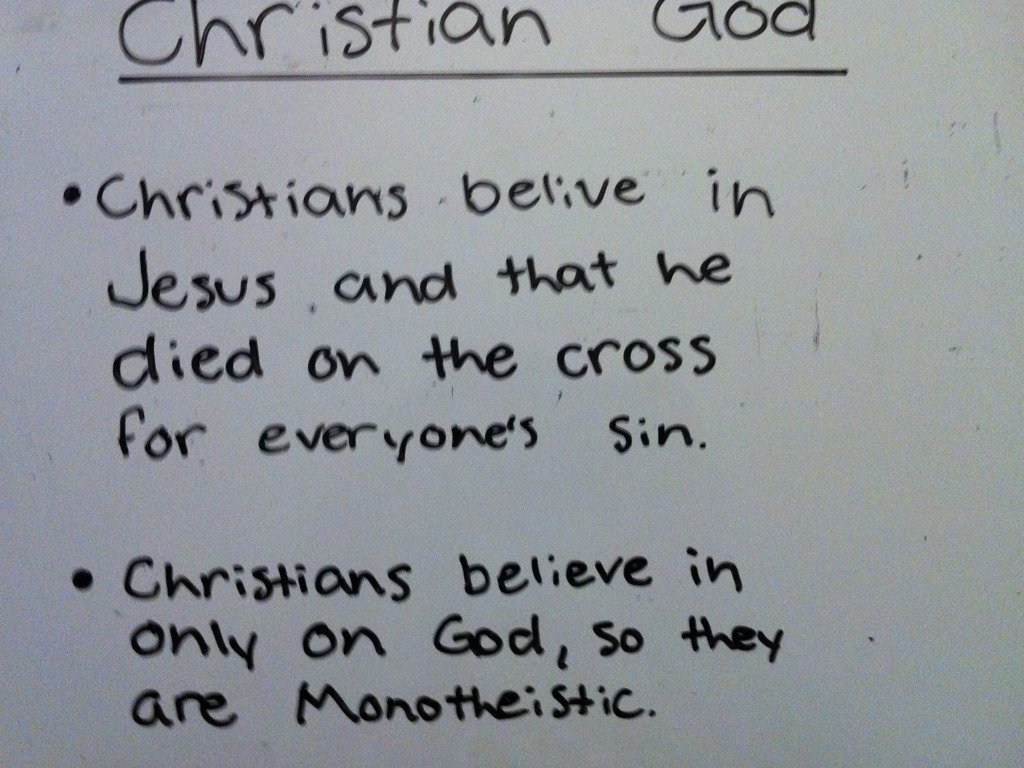 Christian God
• Christians belive in
Jesus and that he
died on the cross
for everyone's sin.
• Christians believe in
only on God, so they
are Monotheistic.